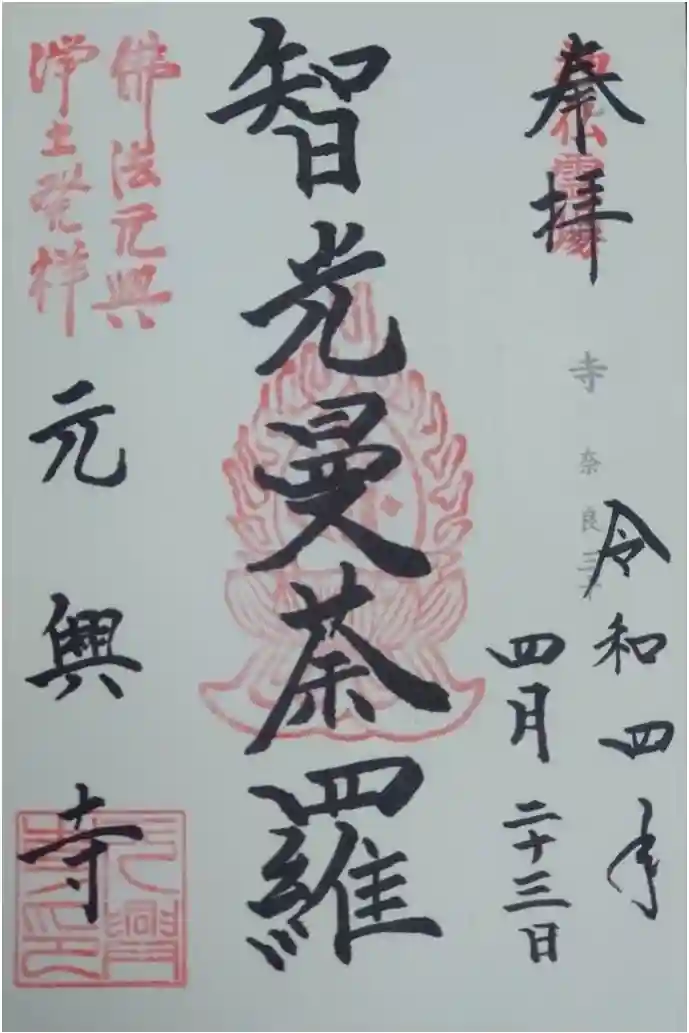 奉拝
令和四年
四月二十三日
智光曼荼羅
佛法元興
浄土発祥
元興寺
寺 奈良